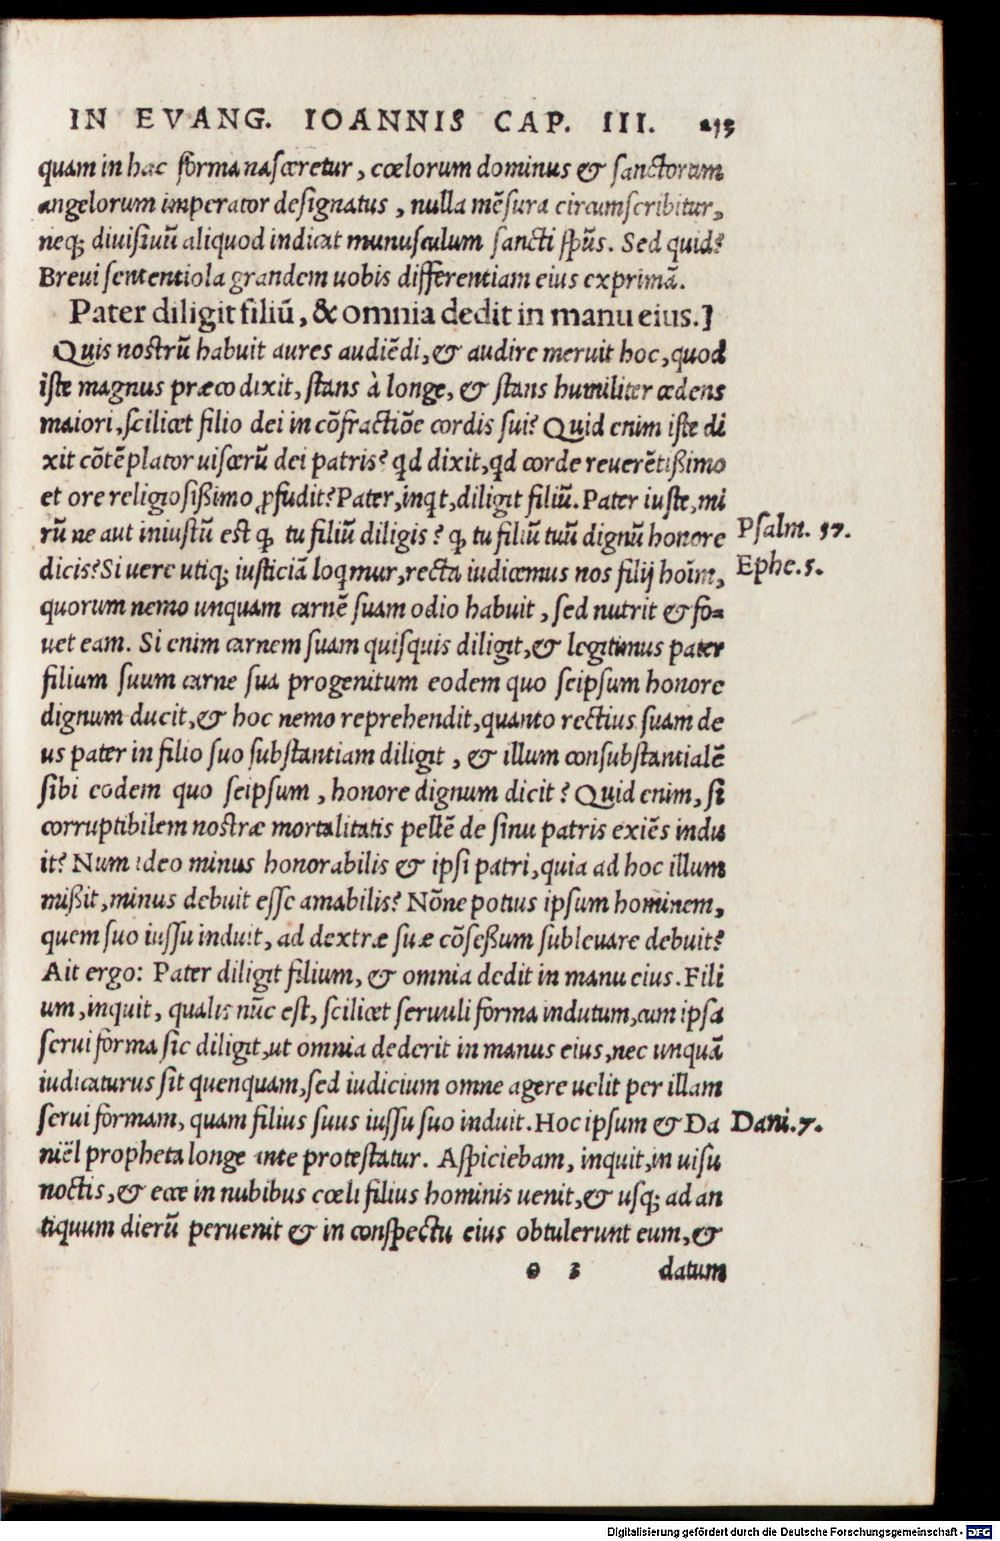 IN EVANG. IOANNIS CAP. III. 213
quam in hac forma nasceretur, cœlorum dominus & sanctorum
angelorum imperator designatus, nulla mẽsura circumscribitur,
neq; divisivũ aliquod indicat munusculum sancti sp̃us. Sed quid?
Brevi sententiola grandem uobis differentiam eius exprimã.
Pater diligit filiũ, & omnia dedit in manu eius.]
Quis nostrũ habuit aures audiẽdi, & audire meruit hoc, quod
iste magnus præco dixit, stans à longe, & stans humiliter cedens
maiori, scilicet filio dei in cõfractiõe cordis sui? Quid enim iste di
xit cõtẽplator uiscerũ dei patris? qd dixit, qd corde reuerẽtißimo
et ore religiosißimo ꝓfudit? Pater, inqt, diligit filiũ. Pater iuste, mi
rũ ne aut iniustũ est ꝙ tu filiũ diligis? ꝙ tu filiũ tuũ dignũ honore
Psalm. 57.
dicis? Si uere utiq; iusticiã loqmur, recta iudicemus nos filij hoĩm,
Ephe. 5.
quorum nemo unquam carnẽ suam odio habuit, sed nutrit & fo=
uet eam. Si enim carnem suam quisquis diligit, & legitimus pater
filium suum carne sua progenitum eodem quo seipsum honore
dignum ducit, & hoc nemo reprehendit, quanto rectius suam de
us pater in filio suo substantiam diligit, & illum consubstantialẽ
sibi eodem quo seipsum, honore dignum dicit? Quid enim, si
corruptibilem nostræ mortalitatis pellẽ de sinu patris exiẽs indu
it? Num ideo minus honorabilis & ipsi patri, quia ad hoc illum
mißit, minus debuit esse amabilis? Nõne potius ipsum hominem,
quem suo iussu induit, ad dextræ suæ cõseßum subleuare debuit?
Ait ergo: Pater diligit filium, & omnia dedit in manu eius. Fili
um, inquit, qualis nũc est, scilicet seruuli forma indutum, cum ipsa
serui forma sic diligit, ut omnia dederit in manus eius, nec unquã
iudicaturus sit quenquam, sed iudicium omne agere uelit per illam
serui formam, quam filius suus iussu suo induit. Hoc ipsum & Da
Dani. 7.
niël propheta longe ante protestatur. Aspiciebam, inquit, in uisu
noctis, & ecce in nubibus cœli filius hominis uenit, & usq; ad an
tiquum dierũ peruenit & in conspectu eius obtulerunt eum, &
o 3 datum
Digitalisierung gefördert durch die Deutsche Forschungsgemeinschaft - DFG